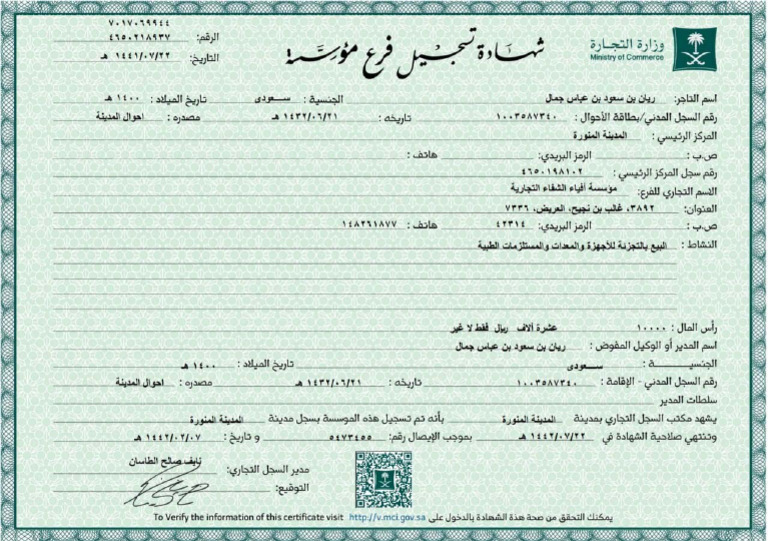 ٧٠١٧٠٦٩٩٤٤
الرقم: ٤٦٥٠٢١٨٩٣٧
التاريخ: ١٤٤١/٠٧/٢٢ هـ
شهادة تسجيل فرع مؤسسة
وزارة التجارة
Ministry of Commerce
اسم التاجر: ريان بن سعود بن عباس جمال الجنسية : سعودى تاريخ الميلاد : ١٤٠٠ هـ
رقم السجل المدني/بطاقة الأحوال : ١٠٠٣٥٨٧٣٤٠ تاريخه : ١٤٣٢/٠٦/٢١ هـ مصدره : احوال المدينة
المركز الرئيسي : المدينة المنورة
ص.ب : الرمز البريدي: هاتف :
رقم سجل المركز الرئيسي : ٤٦٥٠١٩٨١٠٢
الاسم التجاري للفرع: مؤسسة أفياء الشفاء التجارية
العنوان: ٣٨٩٢، غالب بن نجيح، العريض، ٧٣٣٦
ص.ب : الرمز البريدي: ٤٢٣١٤ هاتف : ١٤٨٢٦١٨٧٧
النشاط : البيع بالتجزئة للأجهزة والمعدات والمستلزمات الطبية
رأس المال : ١٠٠٠٠ عشرة آلاف ريال فقط لا غير
اسم المدير أو الوكيل المفوض : ريان بن سعود بن عباس جمال
الجنسيـــــة : سعودى تاريخ الميلاد : ١٤٠٠ هـ
رقم السجل المدني - الإقامة : ١٠٠٣٥٨٧٣٤٠ تاريخه : ١٤٣٢/٠٦/٢١ هـ مصدره : احوال المدينة
سلطات المدير
يشهد مكتب السجل التجاري بمدينة المدينة المنورة بأنه تم تسجيل هذه الموسسة بسجل مدينة المدينة المنورة
وتنتهي صلاحية الشهادة في ١٤٤٢/٠٧/٢٢ هـ بموجب الإيصال رقم: ٥٤٧٣٤٥٥ و تاريخ : ١٤٤٢/٠٢/٠٧ هـ
مدير السجل التجاري: نايف صالح الطاسان
التوقيع:
يمكنك التحقق من صحة هذة الشهادة بالدخول على To Verify the information of this certificate visit http://v.mci.gov.sa